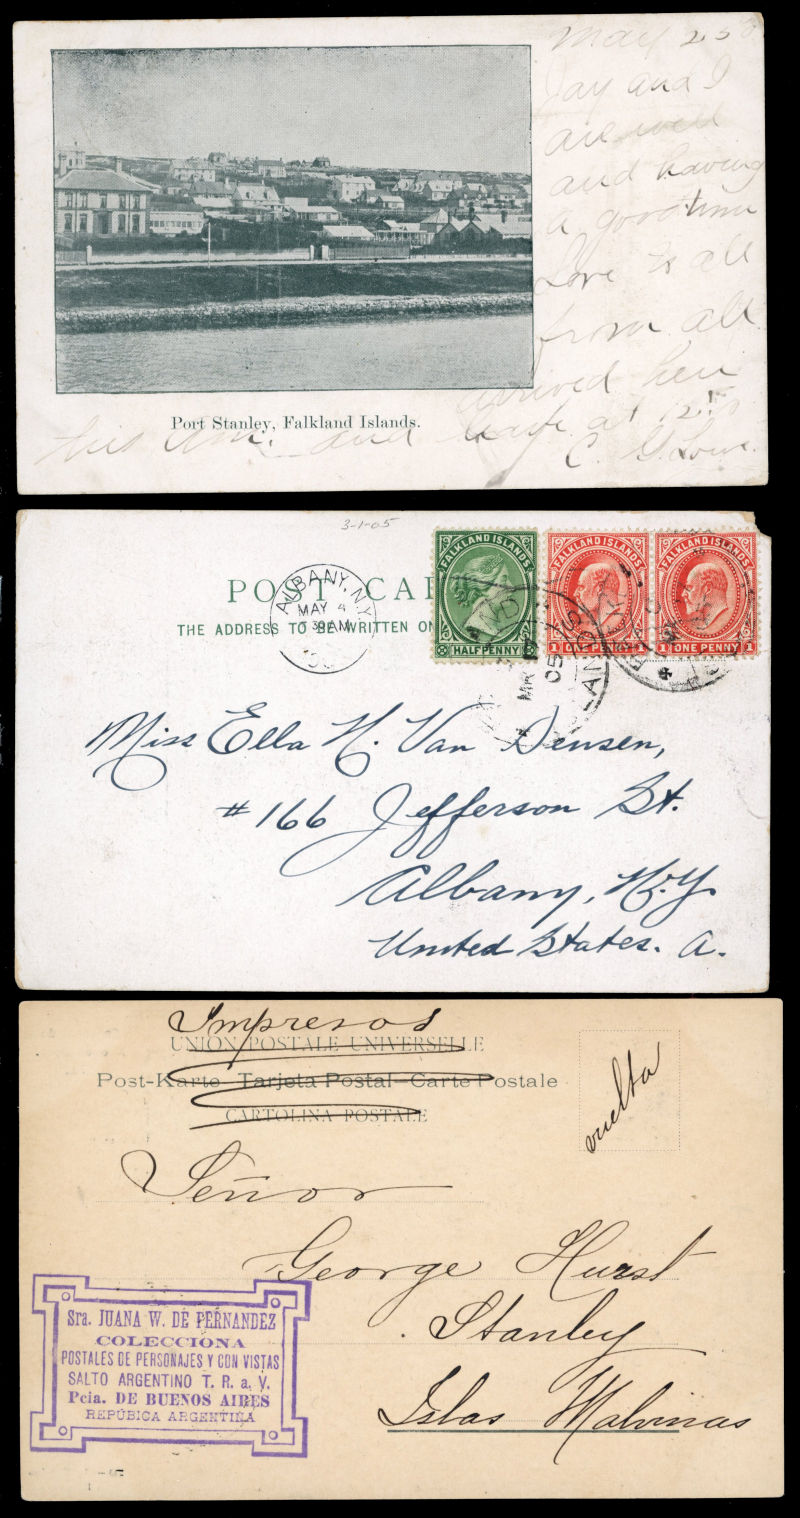 May 25
Jay and I
are well
and having
a good time
Love to all
from all
arrived here
Port Stanley, Falkland Islands.
this and leave at 12
C. G. Low
3-1-05
POST CA
THE ADDRESS TO BE WRITTEN ON
ALBANY, N.Y.
MAY 4
30 AM
FALKLAND ISLANDS
HALFPENNY
FALKLAND ISLANDS
1 ONE PENNY 1
FALKLAND ISLANDS
1 ONE PENNY 1
05
Miss Ella H. Van Sensen,
#166 Jefferson St.
Albany, N.Y.
United States. A.
Impresos
UNION POSTALE UNIVERSELLE
Post-Karte Tarjeta Postal-Carte Postale
CARTOLINA POSTALE
vuelta
Señor
George Hurst
Stanley
Islas Malvinas
Sra. JUANA W. DE FERNANDEZ
COLECCIONA
POSTALES DE PERSONAJES Y CON VISTAS
SALTO ARGENTINO T. R. a. V.
Pcia. DE BUENOS AIRES
REPÚBICA ARGENTINA